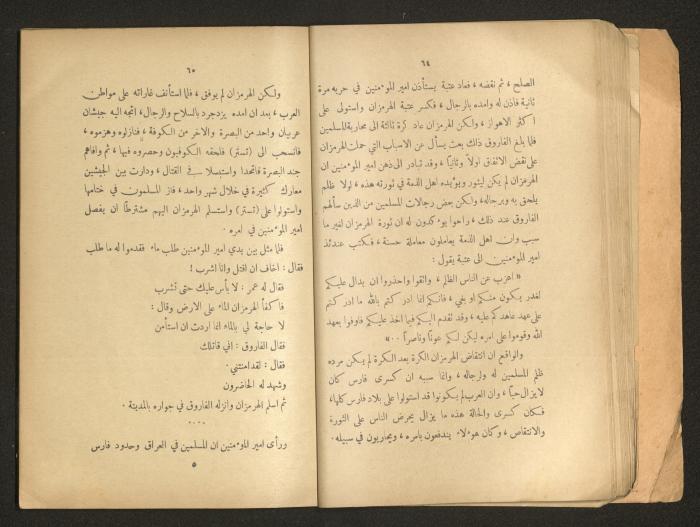 ٦٤
الصلح ، ثم نقضه ، فعاد عتبة يستأذن امير المؤمنين في حربه مرة
ثانية فاذن له وامده بالرجال ، فكسر عتبة الهرمزان واستولى على
اكثر الاهواز ، ولكن الهرمزان عاد كرة ثالثة الى محاربة المسلمين
فلما بلغ الفاروق ذلك بعث يسأل عن الاسباب التي حملت الهرمزان
على نقض الاتفاق اولاً وثانياً ، وقد تبادر الى ذهن امير المؤمنين ان
الهرمزان لم يكن ليثور ويؤيده اهل الذمة في ثورته هذه ، لولا ظلم
يلحق به وبرجاله ، ولكن بعض رجالات المسلمين من الذين سألهم
الفاروق عند ذلك ، راحوا يؤكدون له ان ثورة الهرمزان لغير ما
سبب وان اهل الذمة يعاملون معاملة حسنة ، فكتب عندئذ
امير المؤمنين الى عتبة يقول :
« اعزب عن الناس الظلم ، واتقوا واحذروا ان يدال عليكم
لغدر يكون منكم او بغي ، فانكم انما ادركتم بالله ما ادركتم
على عهد عاهدكم عليه ، وقد تقدم اليكم فيما اخذ عليكم فاوفوا بعهد
الله وقوموا على امره ليكن لكم عوناً وناصراً ٠٠ »
والواقع ان انتقاض الهرمزان الكرة بعد الكرة لم يكن مرده
ظلم المسلمين له ولرجاله ، وانما سببه ان كسرى فارس كان
لا يزال حياً ، وان العرب لم يكونوا قد استولوا على بلاد فارس كلها ،
فكان كسرى والحالة هذه ما يزال يحرض الناس على الثورة
والانتقاص ، وكان هؤلاء يندفعون بامره ، ويحاربون في سبيله ٠
٦٥
ولكن الهرمزان لم يوفق ، فلما استأنف غاراته على مواطن
العرب ، بعد ان امده يزدجرد بالسلاح والرجال ، اتجه اليه جيشان
عربيان واحد من البصرة والاخر من الكوفة ، فنازلوه وهزموه ،
فانسحب الى (تستر) فلحقه الكوفيون وحصروه فيها ، ثم وافاهم
جند البصرة فاتحدا واستبسلا في القتال ، ودارت بين الجيشين
معارك كثيرة في خلال شهر واحد ، فاز المسلمون في ختامها
واستولوا على (تستر) واستسلم الهرمزان اليهم مشترطاً ان يفصل
امير المؤمنين في امره ٠
فلما مثل بين يدي امير المؤمنين طلب ماء فقدموا له ما طلب
فقال : اخاف ان اقتل وانا اشرب !
فقال له عمر : لا بأس عليك حتى تشرب
فاكفأ الهرمزان الماء على الارض وقال :
لا حاجة لي بالماء انما اردت ان استأمن
فقال الفاروق : اني قاتلك
فقال : لقد امنتني ٠
وشهد له الحاضرون
ثم اسلم الهرمزان وانزله الفاروق في جواره بالمدينة ٠
٠٠٠٠
ورأى امير المؤمنين ان المسلمين في العراق وحدود فارس
٥